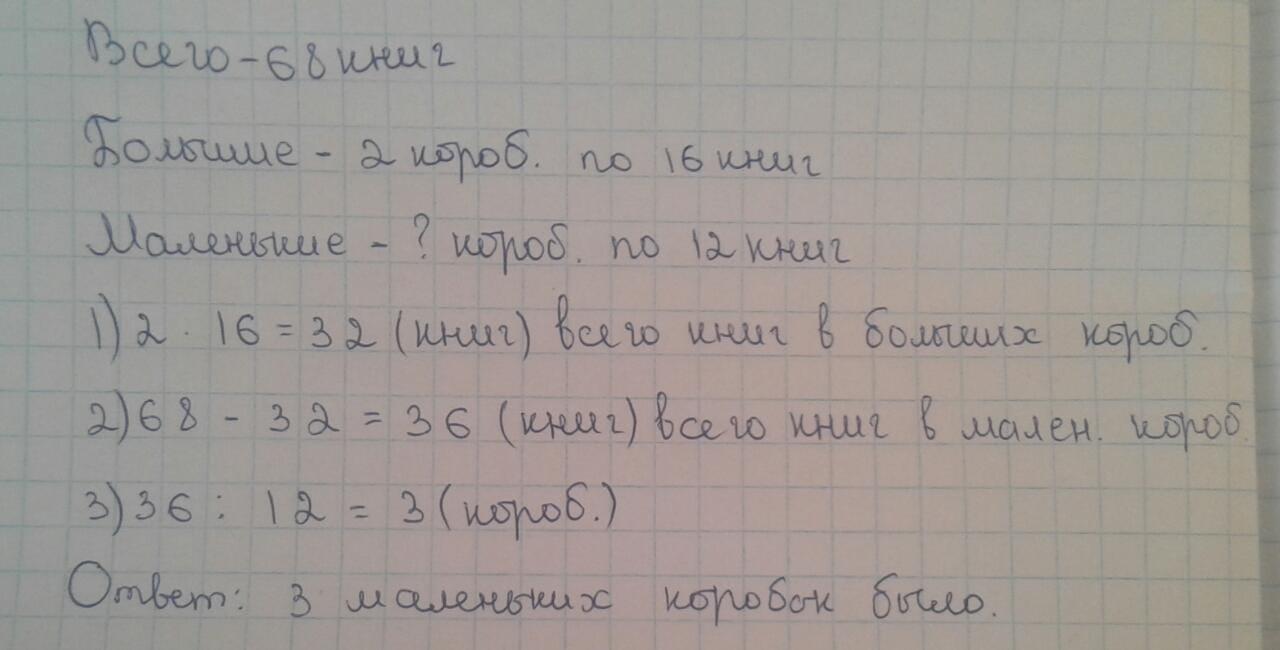 Всего - 68 книг
Большие - 2 короб. по 16 книг
Маленькие - ? короб. по 12 книг
1) 2 · 16 = 32 (книг) всего книг в больших короб.
2) 68 - 32 = 36 (книг) всего книг в мален. короб.
3) 36 : 12 = 3 (короб.)
Ответ: 3 маленьких коробок было.